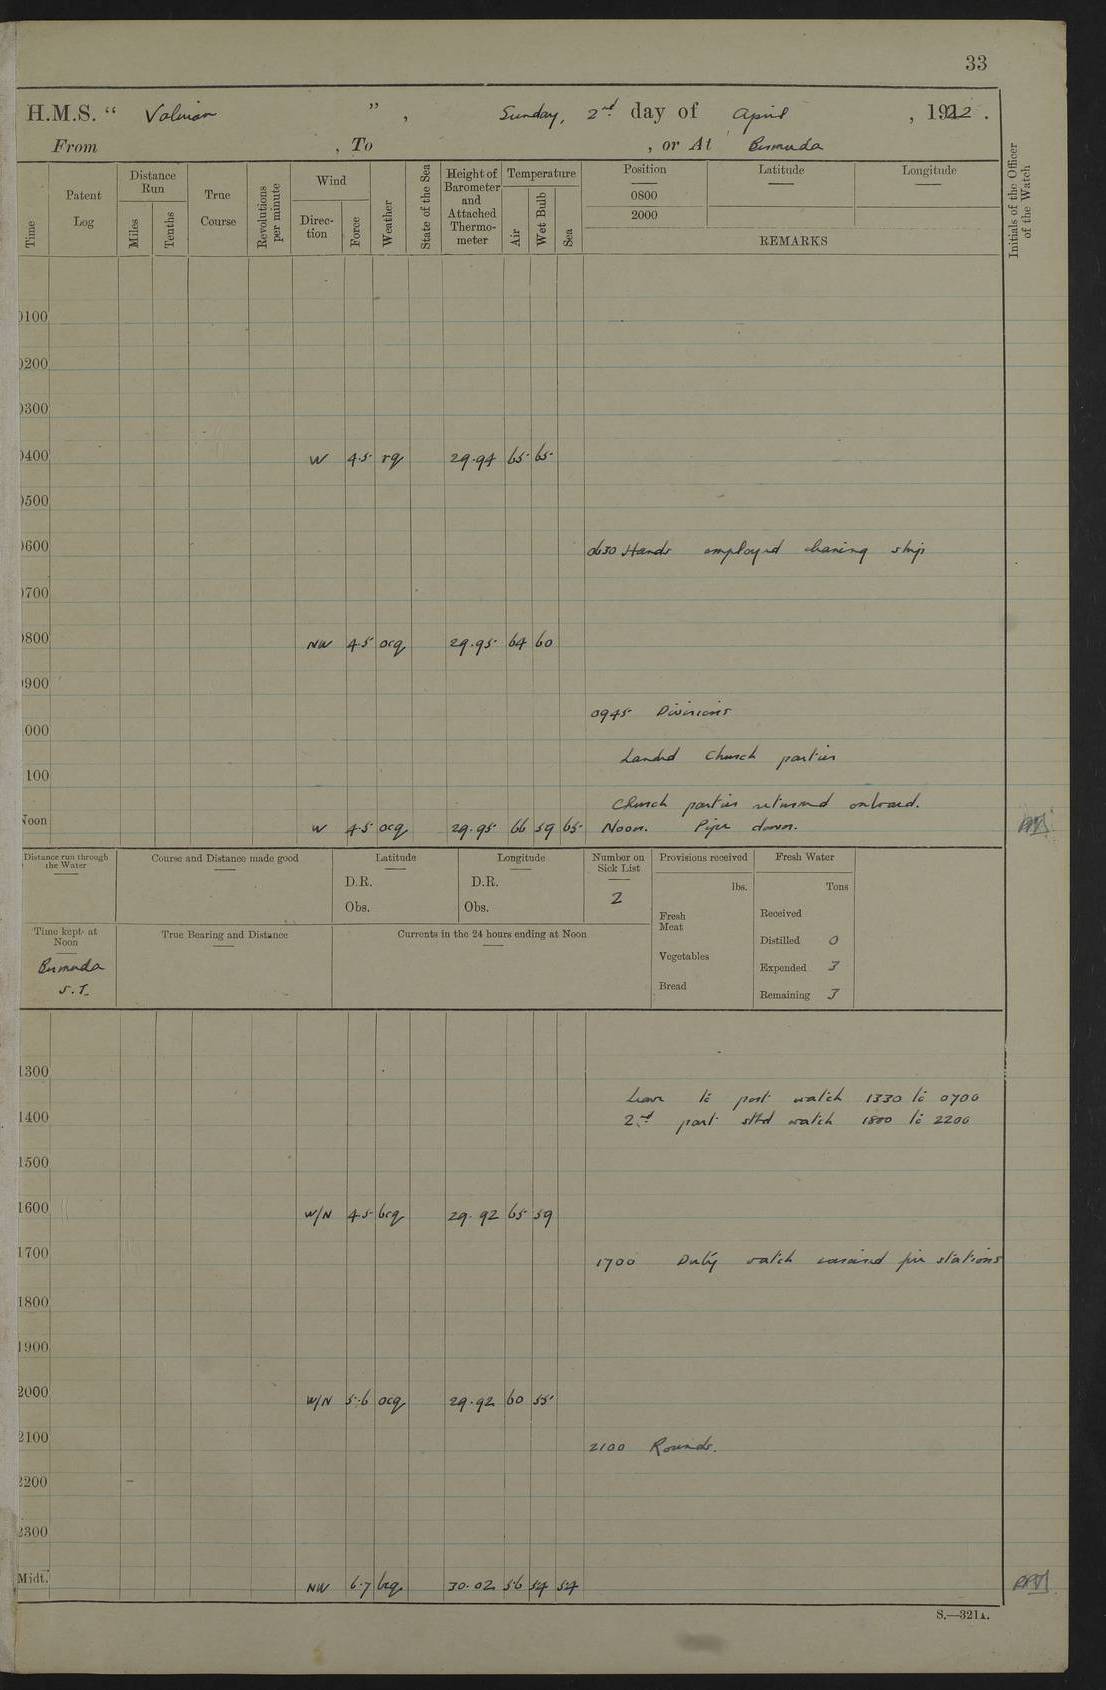 33
H.M.S. “ Valerian ” , Sunday, 2nd day of April , 1922 .
From , To , or At Bermuda
Time
Patent Log
Distance Run
Miles
Tenths
True Course
Revolutions per minute
Wind
Direc-tion
Force
Weather
State of the Sea
Height of Barometer and Attached Thermo-meter
Temperature
Air
Wet Bulb
Sea
Position
0800
2000
Latitude
Longitude
REMARKS
Initials of the Officer of the Watch
0100
0200
0300
0400 W 4.5 rq 29.94 65 65
0500
0600 0630 Hands employed cleaning ship
0700
0800 NW 4.5 ocq 29.95 64 60
0900
0945 Divisions
000
Landed Church parties
100
Church parties returned onboard.
Noon W 4.5 ocq 29.95 66 59 65 Noon. Pipe down.
Distance run through the Water
Course and Distance made good
Latitude
D.R.
Obs.
Longitude
D.R.
Obs.
Number on Sick List
2
Provisions received
lbs.
Fresh Meat
Vegetables
Bread
Fresh Water
Tons
Received
Distilled 0
Expended 3
Remaining 3
Time kept at Noon
Bermuda
S.T.
True Bearing and Distance
Currents in the 24 hours ending at Noon
1300
Leave to port watch 1330 to 0700
1400 2nd part stbd watch 1800 to 2200
1500
1600 W/N 4.5 bcq 29.92 65 59
1700 1700 Duty watch exercised fire stations
1800
1900
2000 W/N 5.6 ocq 29.92 60 55
2100 2100 Rounds.
2200
2300
Midt. NW 6.7 bcq 30.02 56 54 54
S.—321A.